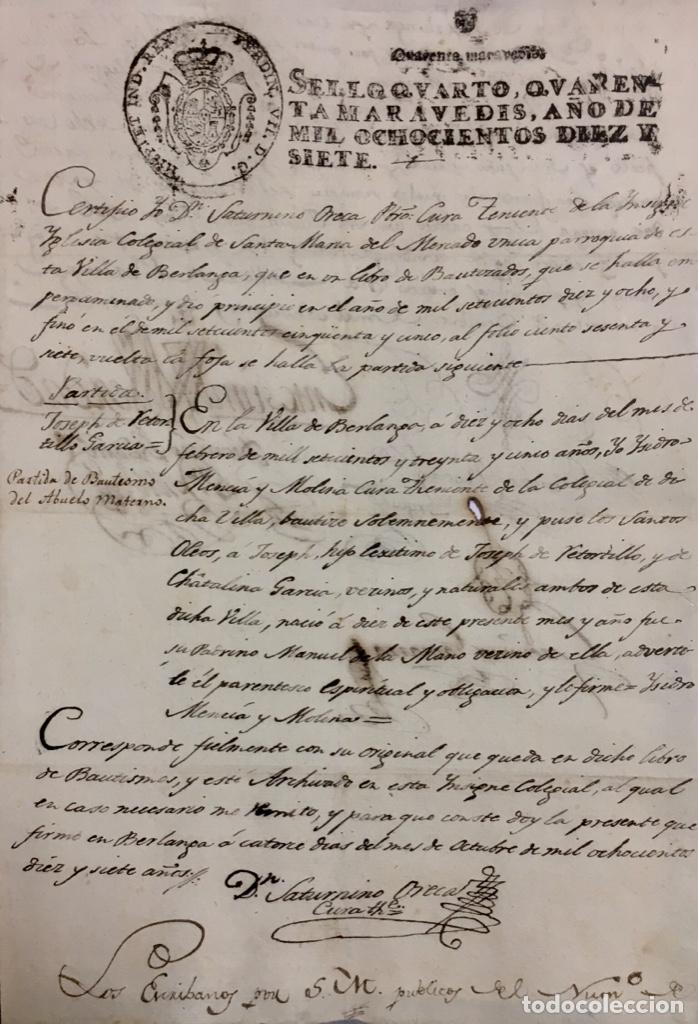 HISP. ET IND. REX FERDIN. VII. D. G.
Quarenta maravedis
SELLO QVARTO, QVAREN-
TA MARAVEDIS, AÑO DE
MIL OCHOCIENTOS DIEZ Y
SIETE.
Certifico Yo Dn. Saturnino Oreca, Pbro. Cura Teniente de la Insigne
Yglesia Colegial de Santa Maria del Mercado vnica parroquia de es
ta Villa de Berlanga, que en un libro de Bautizados, que se halla en
pergaminado, y dio principio en el año de mil setecientos diez y ocho, y
finó en el de mil setecientos cinqüenta y cinco, al folio ciento sesenta y
siete, vuelta la foja se halla la partida siguiente
Partida.
Joseph de Vetor-
tillo Garcia =
Partida de Bautismo
del Abuelo Materno.
En la Villa de Berlanga, á diez y ocho dias del mes de
febrero de mil setecientos y treynta y cinco años, Yo Isidro
Mencia y Molina Cura Theniente de la Colegial de di
cha Villa, bautize solemnemente, y puse los Santos
Oleos, a Joseph, hijo lexitimo de Joseph de Vetortillo, y de
Chatalina Garcia, vezinos, y naturales ambos de esta
dicha Villa, nació á diez de este presente mes y año fue
su Padrino Manuel de la Mano vezino de ella, adverti
le él parentesco espiritual y obligacion, y lo firme = Ysidro
Mencia y Molina =
Corresponde fielmente con su original que queda en dicho libro
de Bautismos, y esté Archivado en esta Insigne Colegial, al qual
en caso necesario me remito, y para que conste doy la presente que
firmo en Berlanga á catorce dias del mes de Octubre de mil ochocientos
diez y siete años.
Dn. Saturnino Oreca
Cura the.
Los Escribanos por S. M. publicos del Numo. de
todocoleccion